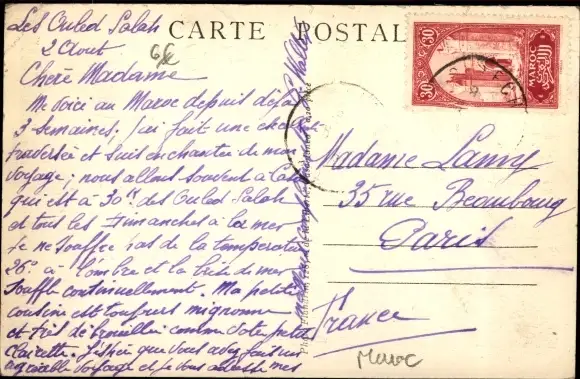 CARTE POSTALE
Les Ouled Salah
2 Aout
Chère Madame
Me voici au Maroc depuis déjà
3 semaines, j'ai fait une
traversée et suis enchantée de mon
voyage; nous allons souvent à Casa
qui est à 30 des Ouled Salah
et tous les dimanches à la mer
Je ne souffre pas de la température
26° à l'ombre et la brise de mer
souffle continuellement. Ma petite
cousine est toujours mignonne
et comme votre petite
Clairette. J'espère que vous avez fait un
agréable voyage et je vous adresse mes
30
MAROC
30
Madame Lamy
35 rue Beaubourg
Paris
France
Maroc